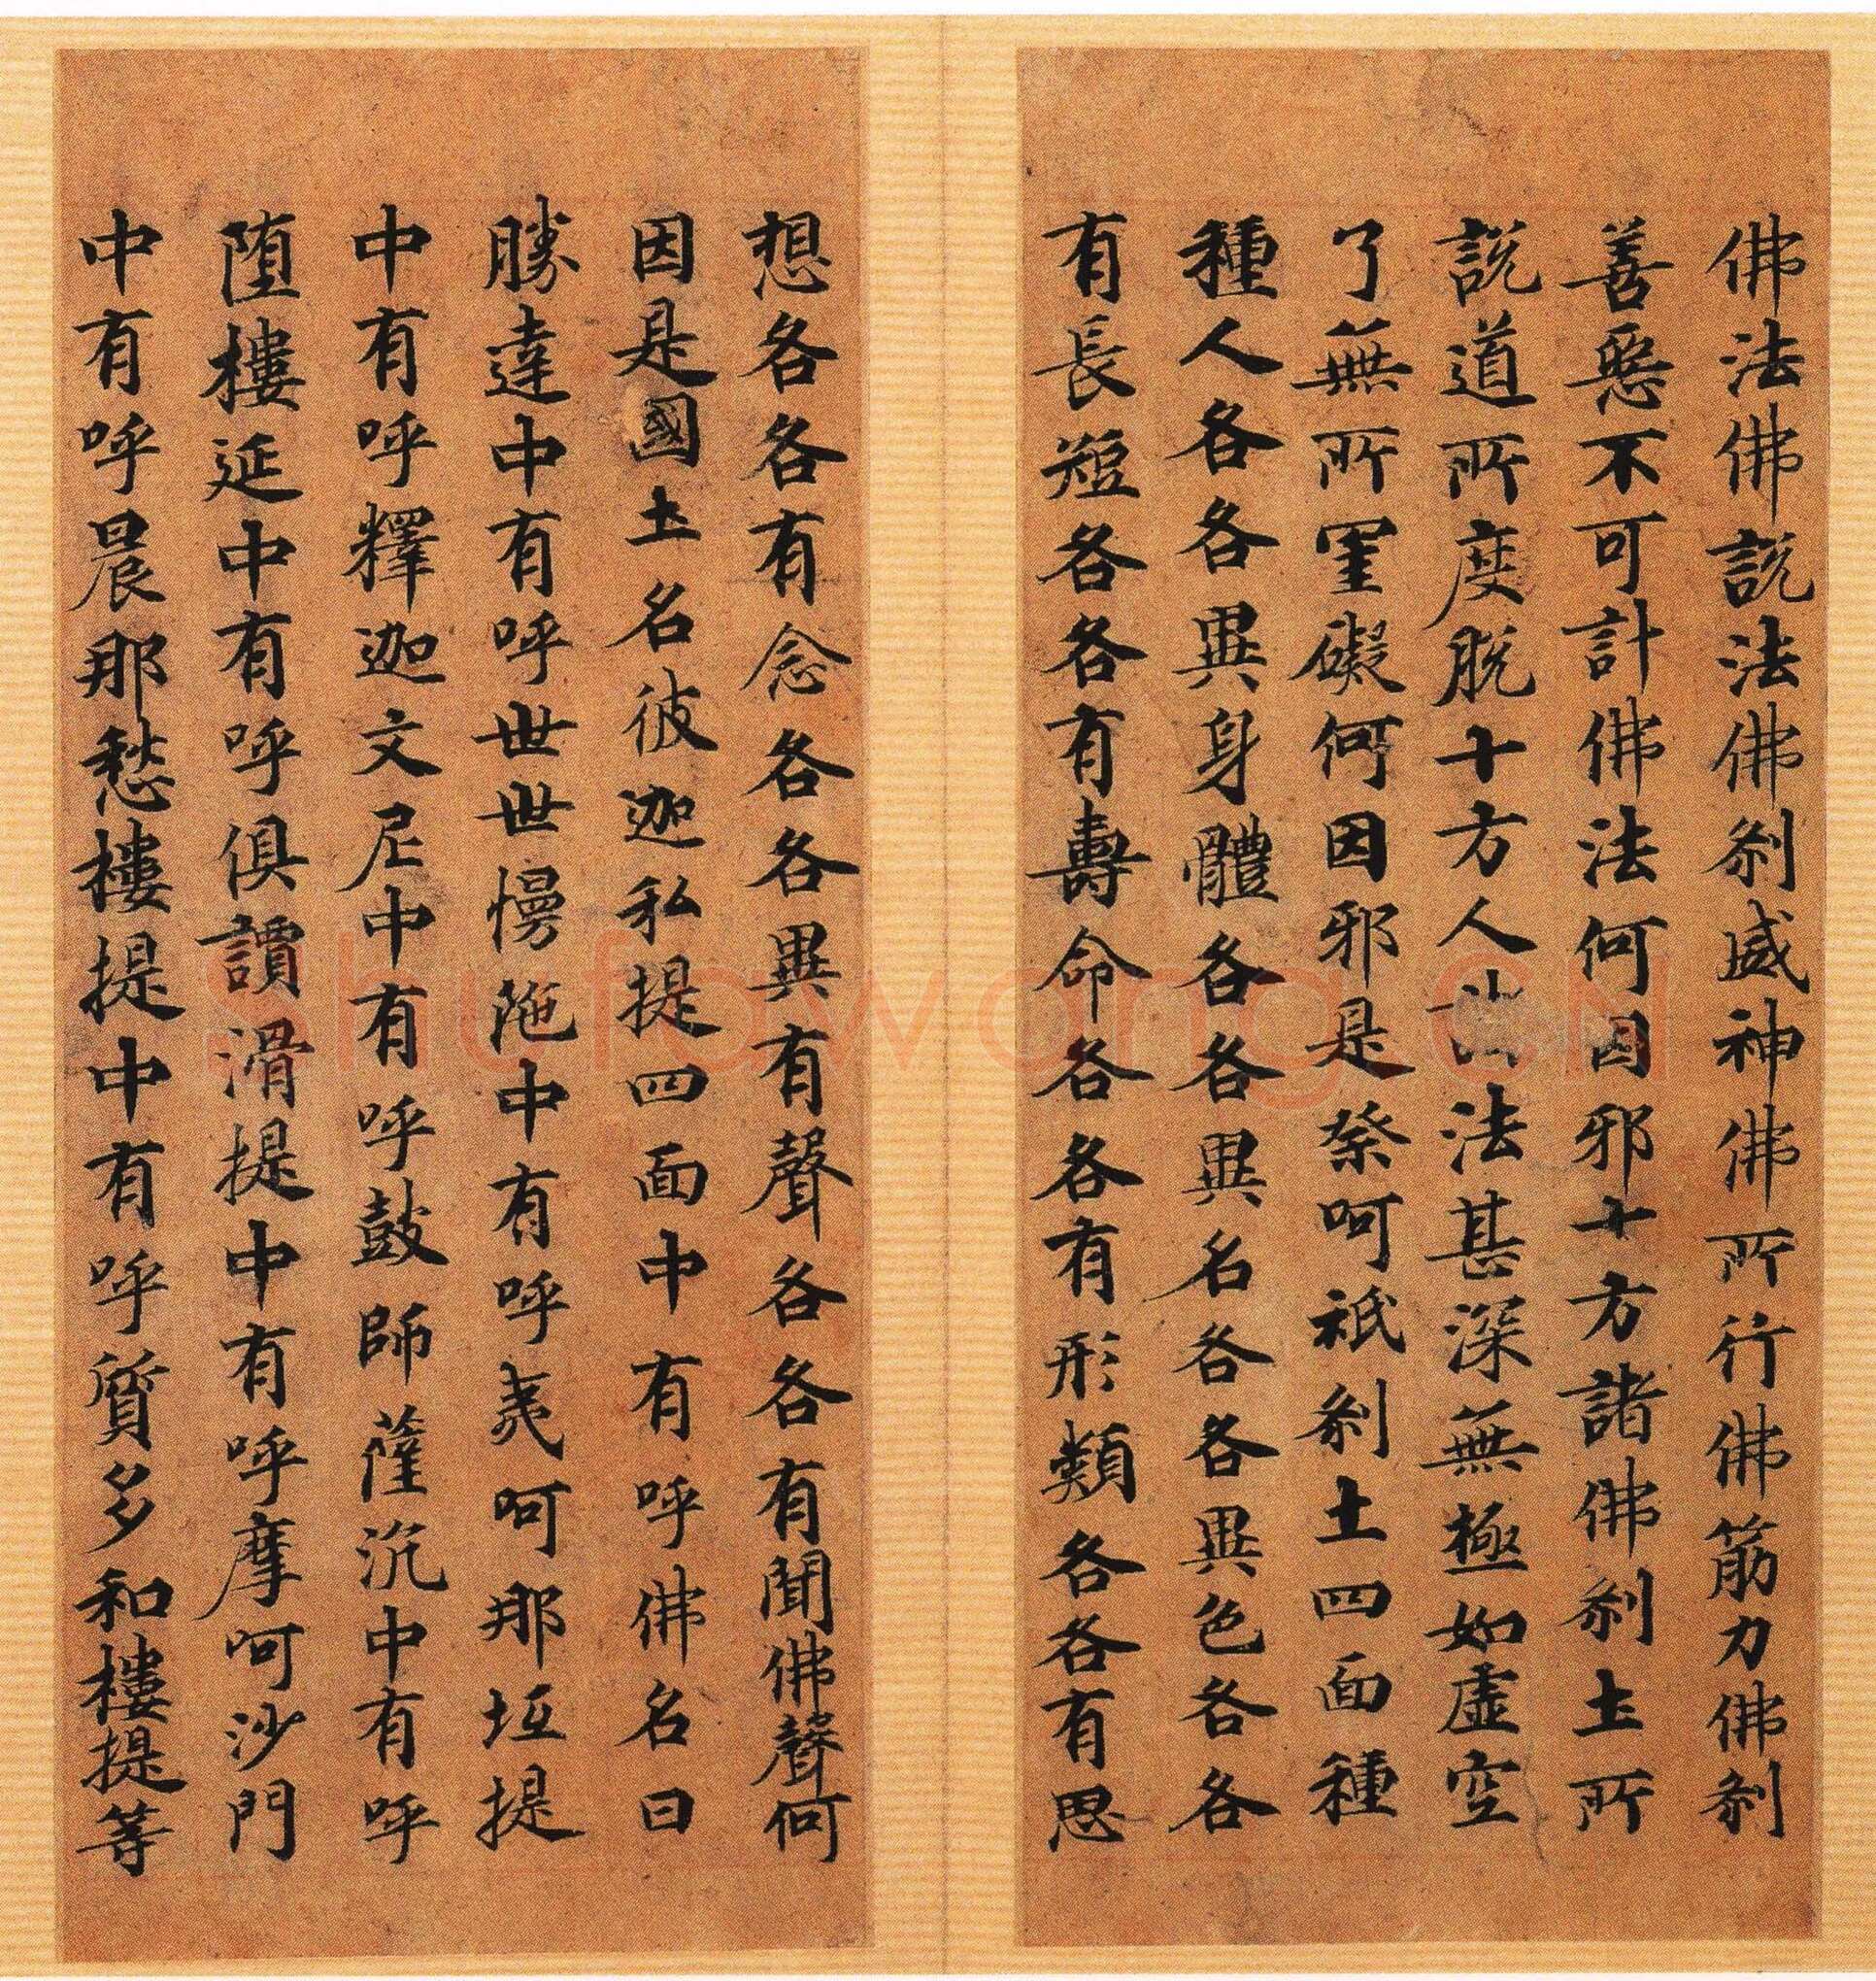 佛法佛說法佛剎威神佛所行佛筋力佛剎
善惡不可計佛法何因邪十方諸佛剎土所
說道所度脫十方人法甚深無極如虛空
了無所罣礙何因邪是祭呵祇剎土四面種
種人各各異身體各各異名各各異色各各
有長短各各有壽命各各有形類各各有思
想各各有念各各異有聲各各有聞佛聲何
因是國土名彼迦私提四面中有呼佛名曰
勝達中有呼世世慢陁中有呼夷呵那坵提
中有呼釋迦文尼中有呼鼓師薩沉中有呼
墮樓延中有呼俱讀滑提中有呼摩呵沙門
中有呼晨那愁樓提中有呼質多和樓提等
shufawang.CN